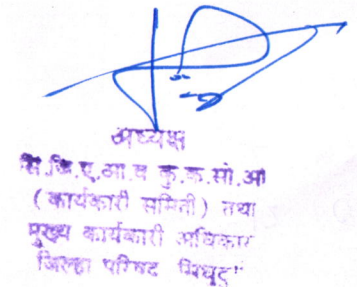 अध्यक्ष
सि.जि.ए.आ.व कु.क.सो.ओ
(कार्यकारी समिती) तथा
मुख्य कार्यकारी अधिकार
जिल्हा परिषद सिंधुदु